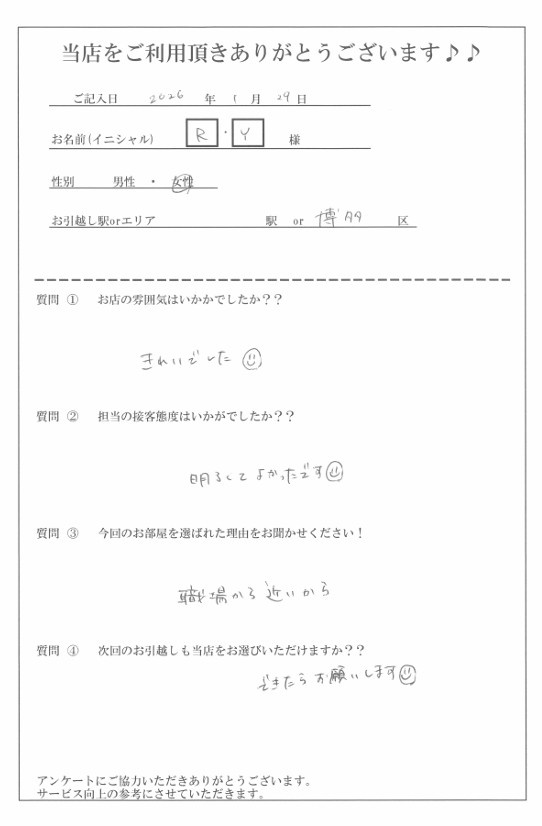 当店をご利用頂きありがとうございます♪♪
ご記入日 2026 年 1 月 29 日
お名前(イニシャル) R ・ Y 様
性別 男性 ・ 女性
お引越し駅orエリア 駅 or 博多 区
質問 ① お店の雰囲気はいかかでしたか??
きれいでした☺
質問 ② 担当の接客態度はいかがでしたか??
明るくてよかったです☺
質問 ③ 今回のお部屋を選ばれた理由をお聞かせください!
職場から近いから
質問 ④ 次回のお引越しも当店をお選びいただけますか??
できたらお願いします☺
アンケートにご協力いただきありがとうございます。
サービス向上の参考にさせていただきます。